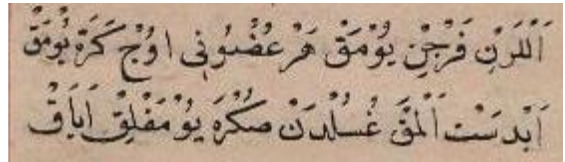 اَللَّرِنِ فَرْجِنِ يُوْمَقْ هَرْ عُضُوُنِى اوُچْ كَرَّه يُومَقْ
اَبْدَسْت اَلْمَقْ غُسُلْدَنْ صُكْرَه يُوْمَقْلِقْ اَيَاقْ